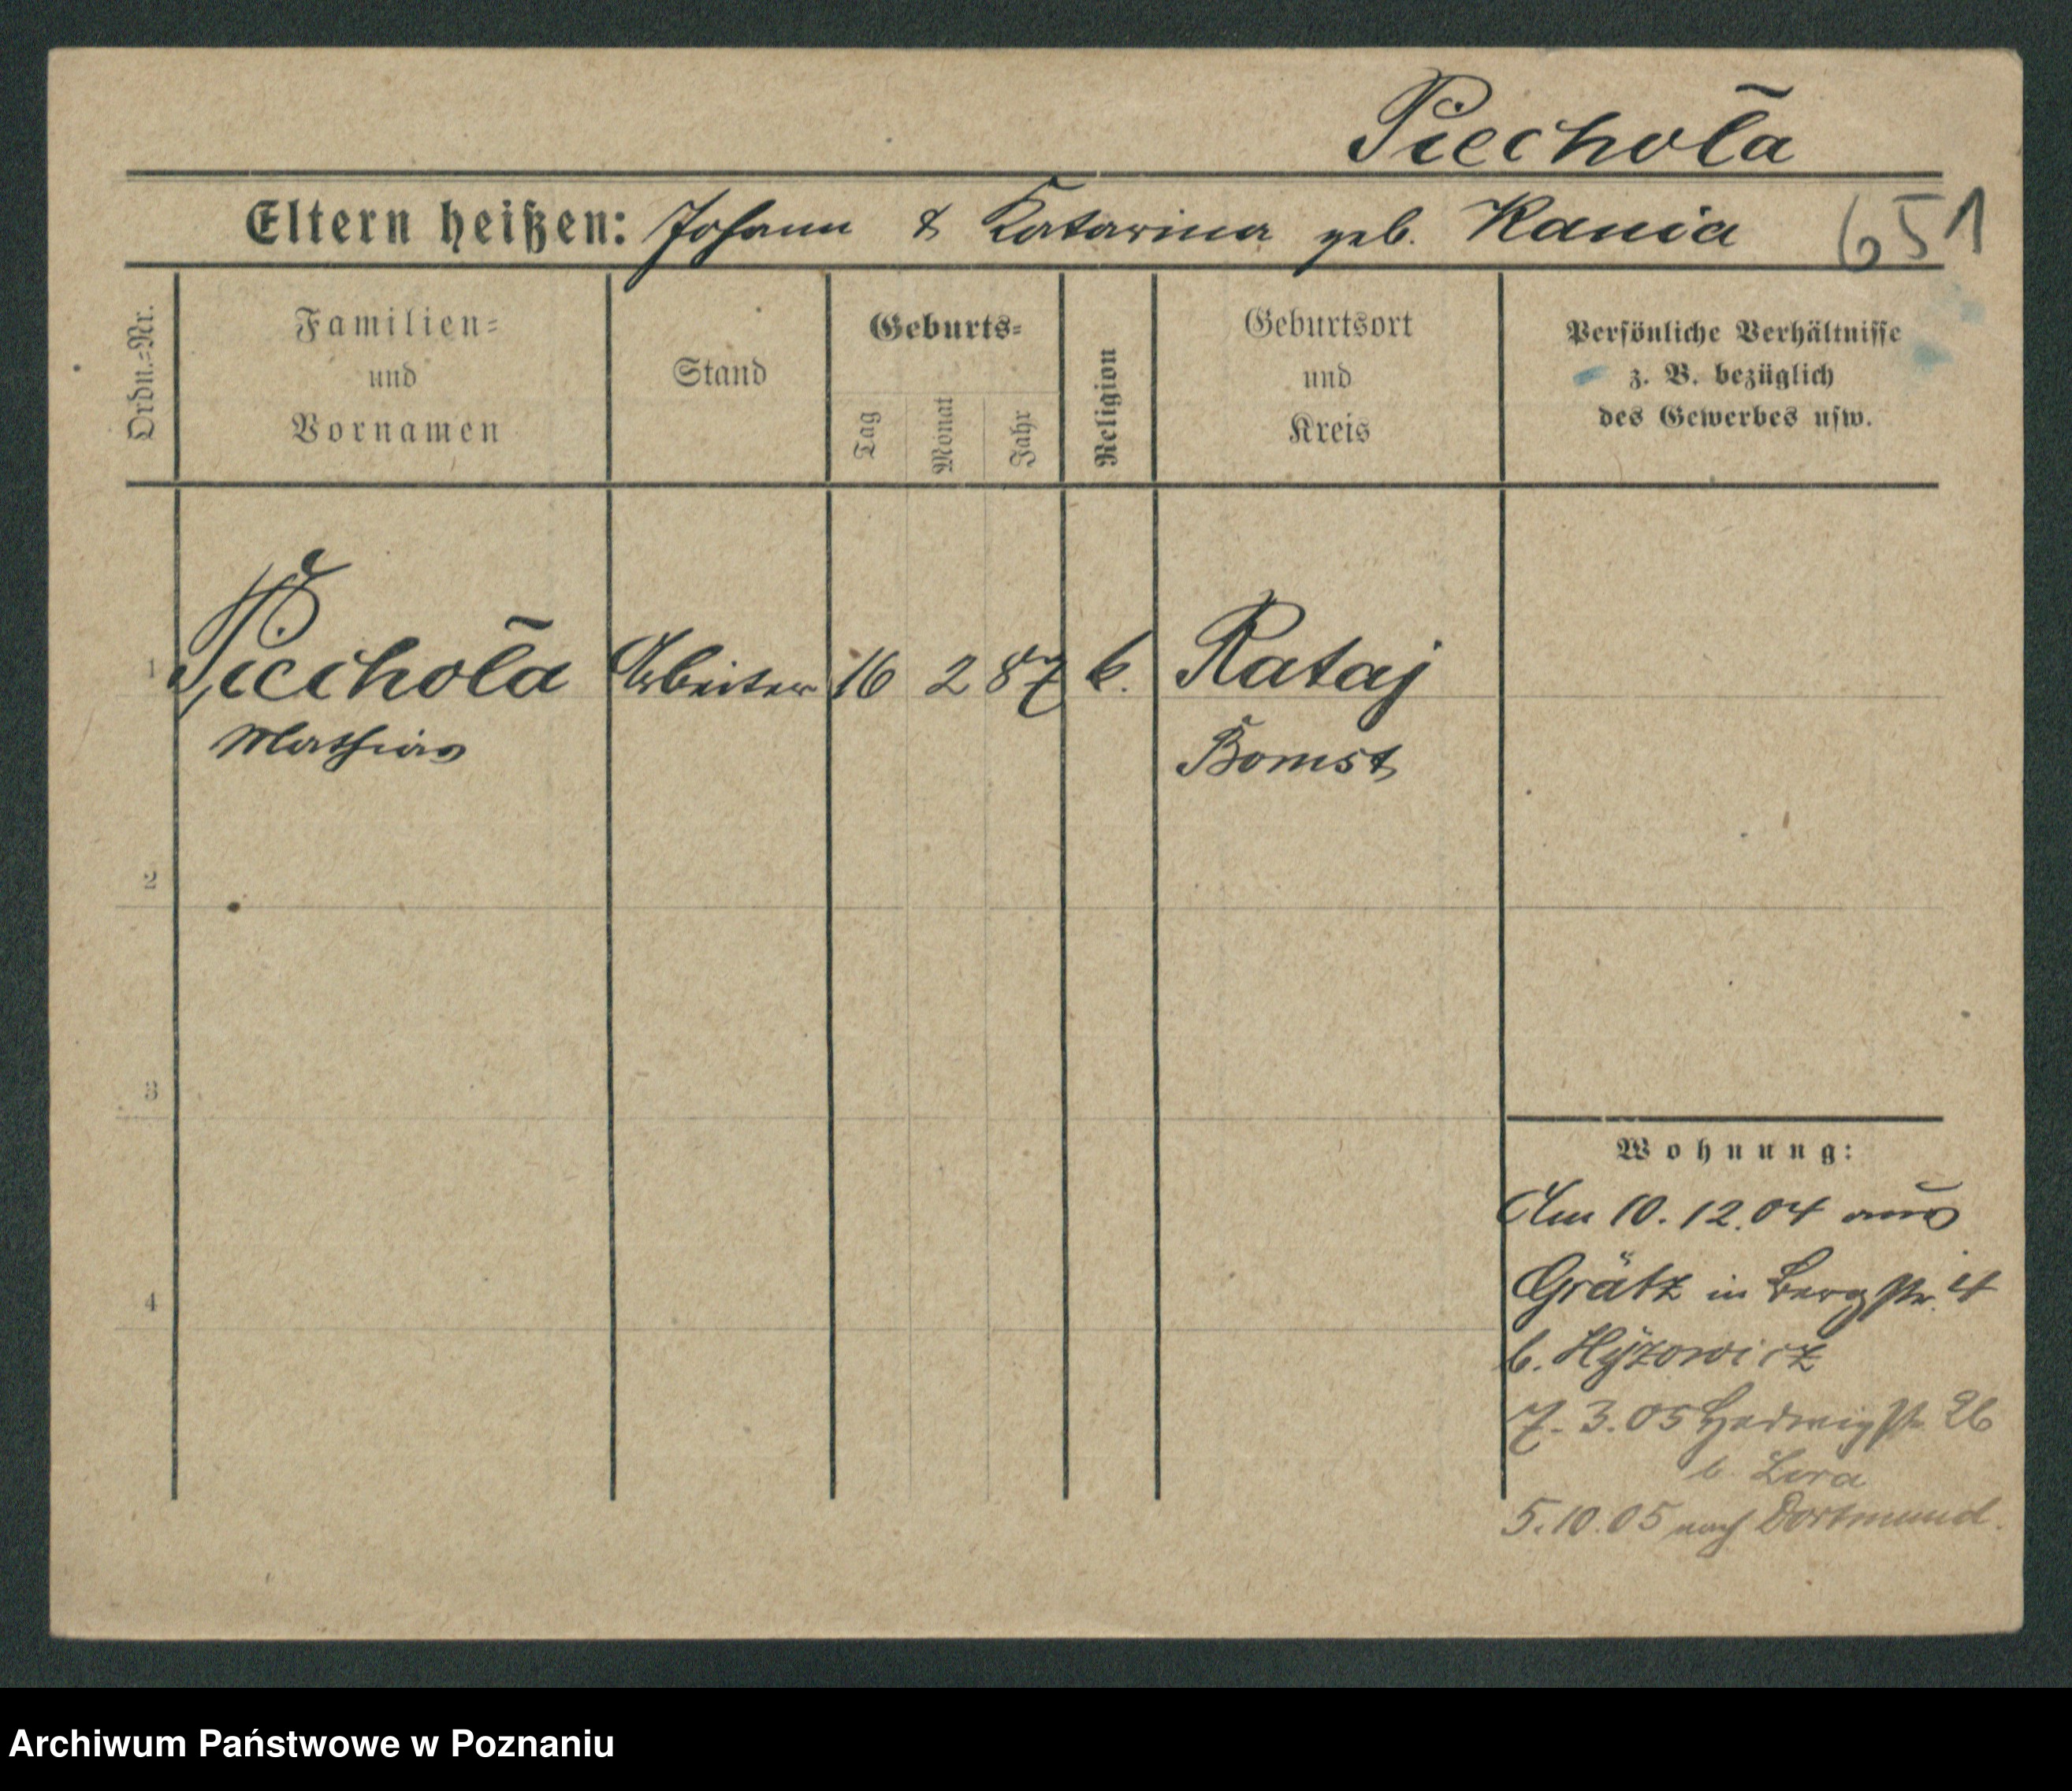 Piechoła
Eltern heißen: Johann & Katarina geb. Kania 651
Ordn.-Nr.
Familien-
und
Vornamen
Stand
Geburts-
Tag
Monat
Jahr
Religion
Geburtsort
und
Kreis
Persönliche Verhältnisse
z. B. bezüglich
des Gewerbes usw.
1 Piechoła Arbeiter 16 2 87 k. Rataj
Mathias Bomst
2
3
4
Wohnung:
Am 10.12.04 aus
Grätz in Bergstr. 4
b. Hyzowicz
7.3.05 Hedwigstr 26
b. Lora
5.10.05 nach Dortmund.
Archiwum Państwowe w Poznaniu